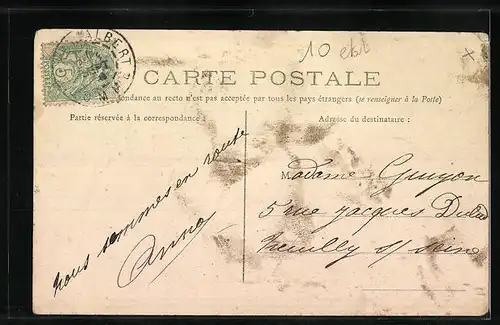 ALBERT
10
CARTE POSTALE
ondance au recto n'est pas acceptée par tous les pays étrangers (se renseigner à la Poste)
Partie réservée à la correspondance :
Adresse du destinataire :
nous sommes en route
Anna
Madame Guyon
5 rue Jacques
Neuilly s/ Seine